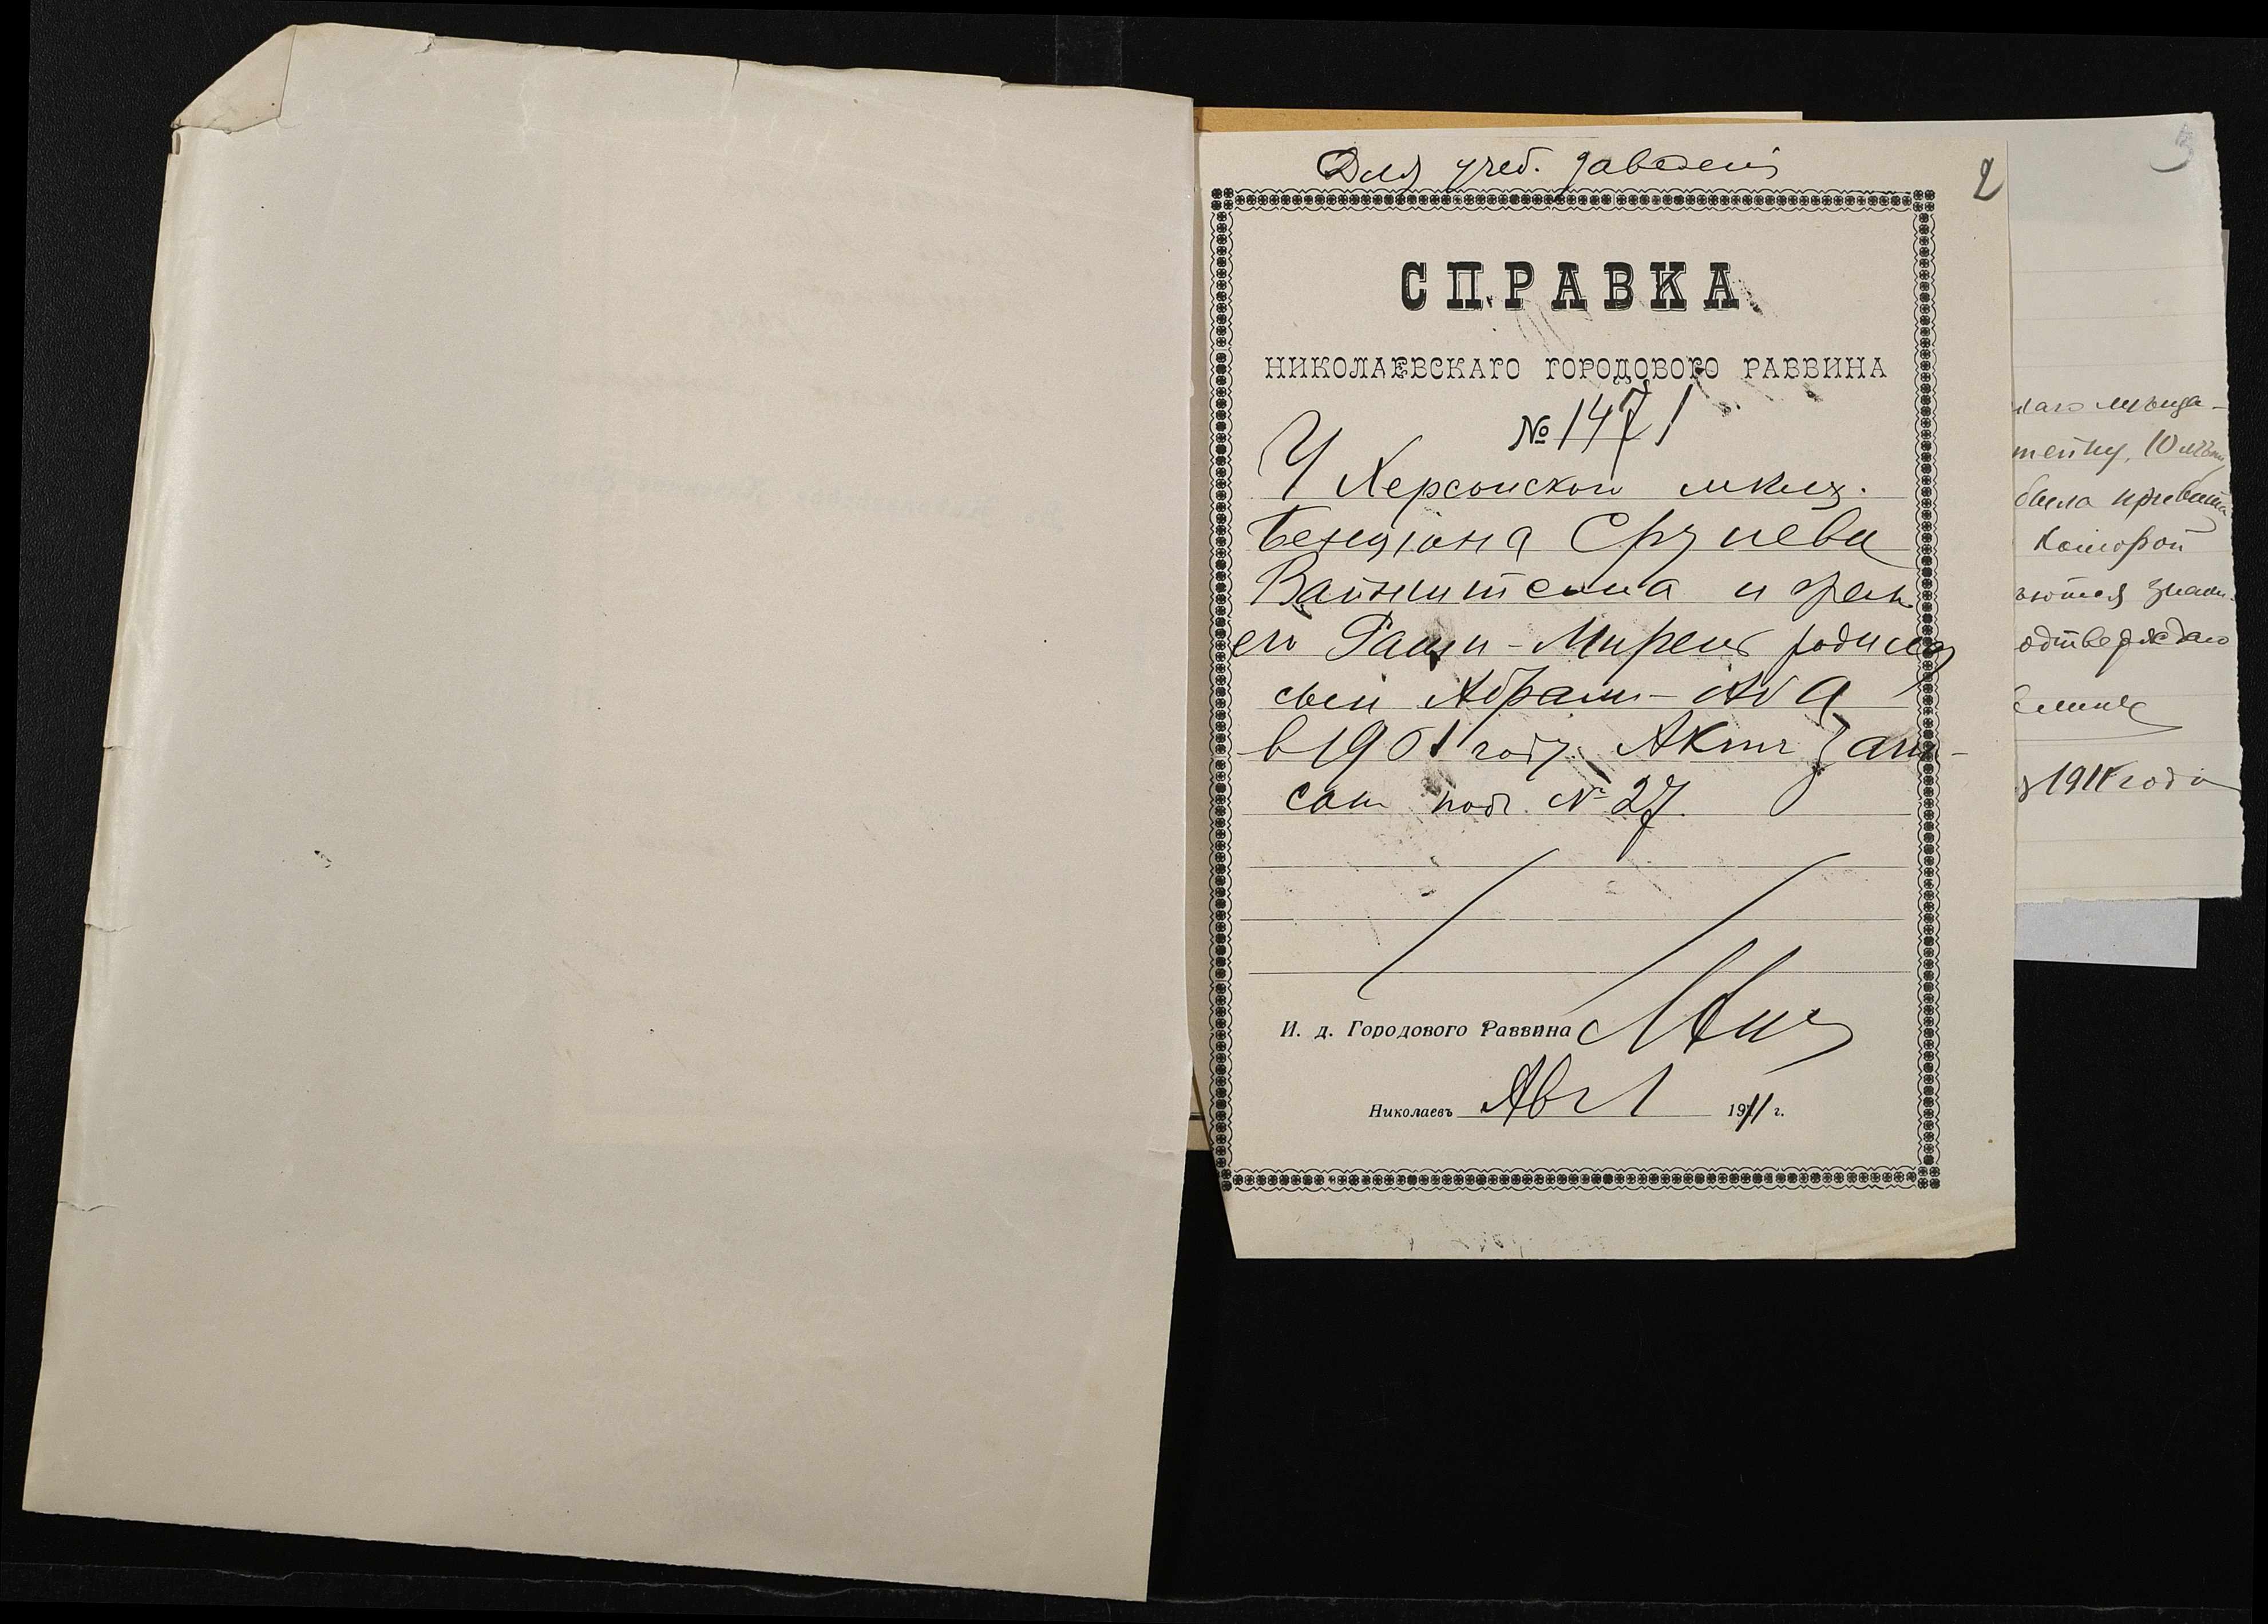 Для учеб. заведенiй
2
СПРАВКА
НИКОЛАЕВСКАГО ГОРОДОВОГО РАВВИНА
№ 1471
У Херсонскаго
Бенціона Срулева
Вайнштейна и жены
его Раши-Миреи родился
сын Абрам-Аба
в 1901 году. Актъ запи-
сан под № 27.
И. д. Городового Раввина
Николаевъ Авг 1 1911 г.
3
наго мѣща-
10 лѣтъ
была привита
которой
знаки
одтверждаю
1911 года